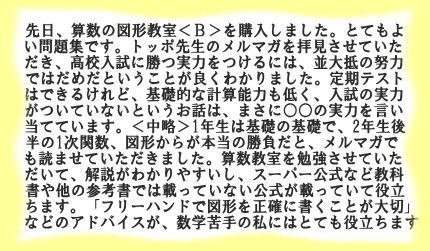 先日、算数の図形教室＜Ｂ＞を購入しました。とてもよ
い問題集です。トッポ先生のメルマガを拝見させていた
だき、高校入試に勝つ実力をつけるには、並大抵の努力
ではだめだということが良くわかりました。定期テスト
はできるけれど、基礎的な計算能力も低く、入試の実力
がついていないというお話は、まさに○○の実力を言い
当てています。＜中略＞1年生は基礎の基礎で、2年生後
半の1次関数、図形からが本当の勝負だと、メルマガで
も読ませていただきました。算数教室を勉強させていた
だいて、解説がわかりやすいし、スーパー公式など教科
書や他の参考書では載っていない公式が載っていて役立
ちます。「フリーハンドで図形を正確に書くことが大切」
などのアドバイスが、数学苦手の私にはとても役立ちます